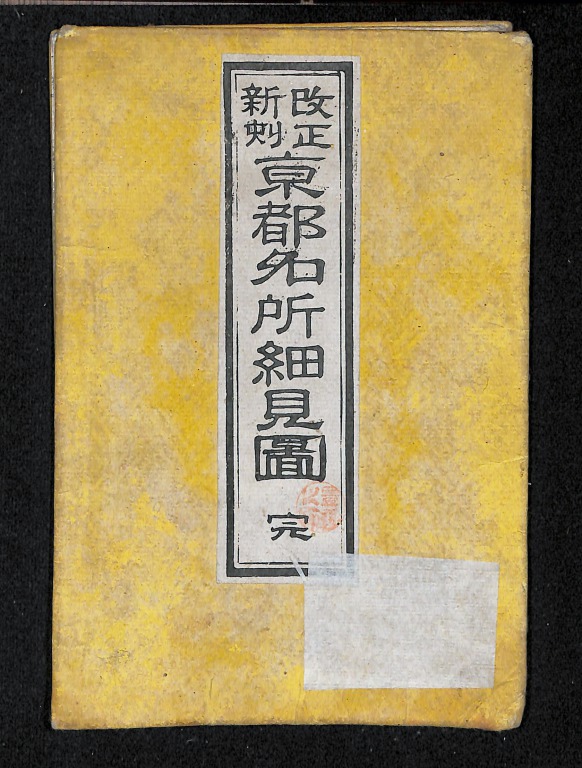 改正
新刻
京都名所細見圖
完